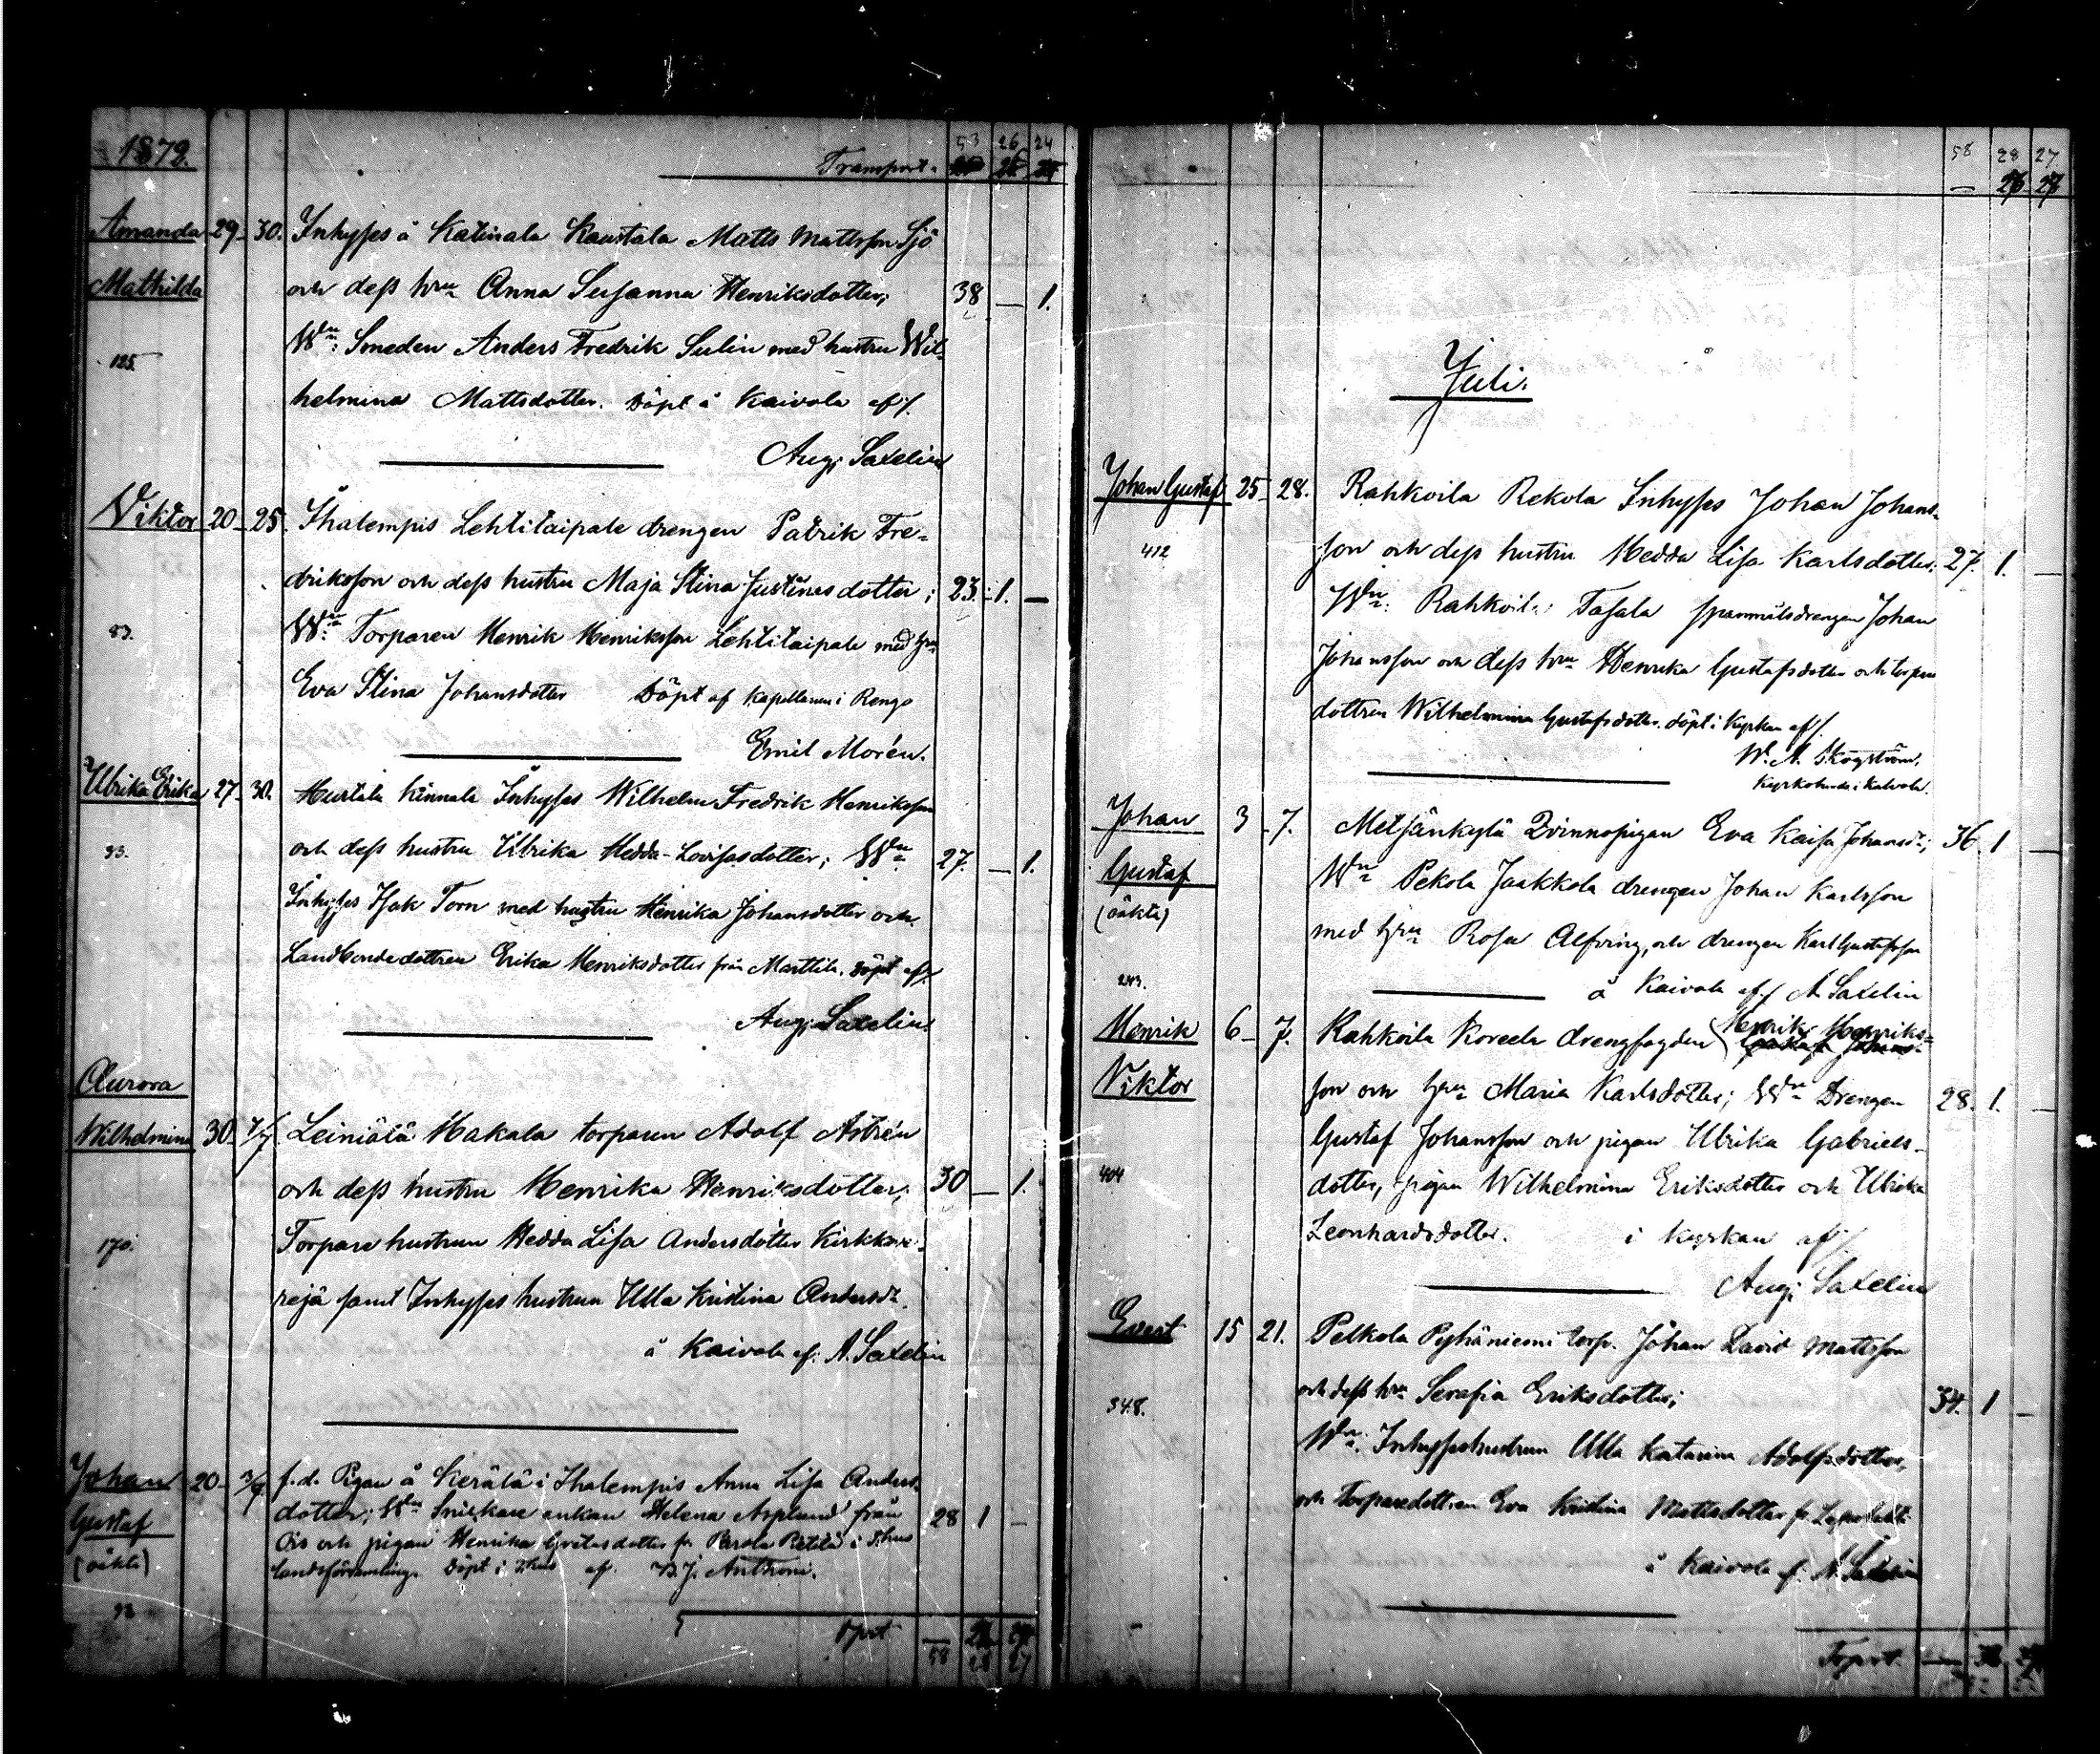 1879.
Transport. 53 26 24
Amanda 29 30. Inhyses å Katinala Kaustala Matts Mattsson Sjö
Mathilda och dess hru Anna Susanna Henriksdotter; 38 — 1.
Wn: Smeden Anders Fredrik Sulin med hustru Wil-
125. helmina Mattsdotter. Döpt å Kaivola af/.
Aug. Saxelin
Viktor 20 25. Ihalempis Lehtitaipale drengen Patrik Fre-
driksson och dess hustru Maja Stina Justinas dotter; 23. 1. —
83. Wn: Torparen Henrik Henriksson Lehtitaipale med hru
Eva Stina Johansdotter Döpt af Kapellanen i Rengo
Emil Morén.
Ulrika Erika 27 30. Hurtala Kinnala Inhyses Wilhelm Fredrik Henriksson
och dess hustru Ulrika Hedda-Lovisasdotter; Wn 27. — 1.
93. Inhyses Isak Torn med hustru Henrika Johansdotter och
Landbondedottren Erika Henriksdotter från Marttila. Döpt af/.
Aug. Saxelin.
Aurora
Wilhelmina 30 7/7 Leiniälä Hakala torparen Adolf Astrén
och dess hustru Henrika Henriksdotter; 30 — 1.
170. Torpare hustrun Hedda Lisa Andersdotter
samt Inhyses hustrun Ulla Kristina Andersdr.
å Kaivola af: A. Saxelin
Johan 20 3/9 f.d. Pigan å Kerälä i Ihalempis Anna Lisa Anders-
Gustaf dotter; Wn Snickare enkan Helena Asplund från 28 1 —
(oäkta) Ois och pigan Henrika i Thus
landsförsamling. Döpt i Thus af B.J. Anthoni.
93
Tprt — 58 28 27
58 28 27
— 26 27
Juli.
Johan Gustaf 25 28. Rahkoila Rekola Inhyses Johan Johans-
412 son och dess hustru Hedda Lisa Karlsdotter. 27. 1. —
Wn: Rahkoila Tasala spannmålsdrengen Johan
Johansson och dess hru Henrika Gustafsdotter och torpare
dottren Wilhelmina Gustafsdotter. Döpt i Kyrkan af/.
W. A. Skogström,
Kyrkoherde i Kalvola.
Johan 3 7. Metsänkylä Qvinnopigan Eva Kaisa Johansdr; 36. 1 —
Gustaf Wn Pekola Jaakkola drengen Johan Karlsson
(oäkta) med hru Rosa Alfving, och drengen Karl Gustafsson
243. å Kaivola af/ A. Saxelin
Henrik 6 7. Rahkoila Koreela drengfogden Henrik Henriks-
Viktor son och hru Maria Karlsdotter; Wn Drengen 28. 1. —
Gustaf Johansson och pigan Ulrika Gabriels-
404 dotter, pigan Wilhelmina Eriksdotter och Ulrika
Leonhardsdotter. i Kyrkan af/
Aug. Saxelin
Evert 15 21. Pelkola Pyhäniemi torp. Johan David Mattsson
348. och dess hru Serafia Eriksdotter; 34. 1 —
Wn: Inhyseshustrun Ulla Katarina Adolfsdotter,
och Torparedottren Eva Kristina Mattsdotter fr
å Kaivola af: A. Saxelin
Tsprt. —